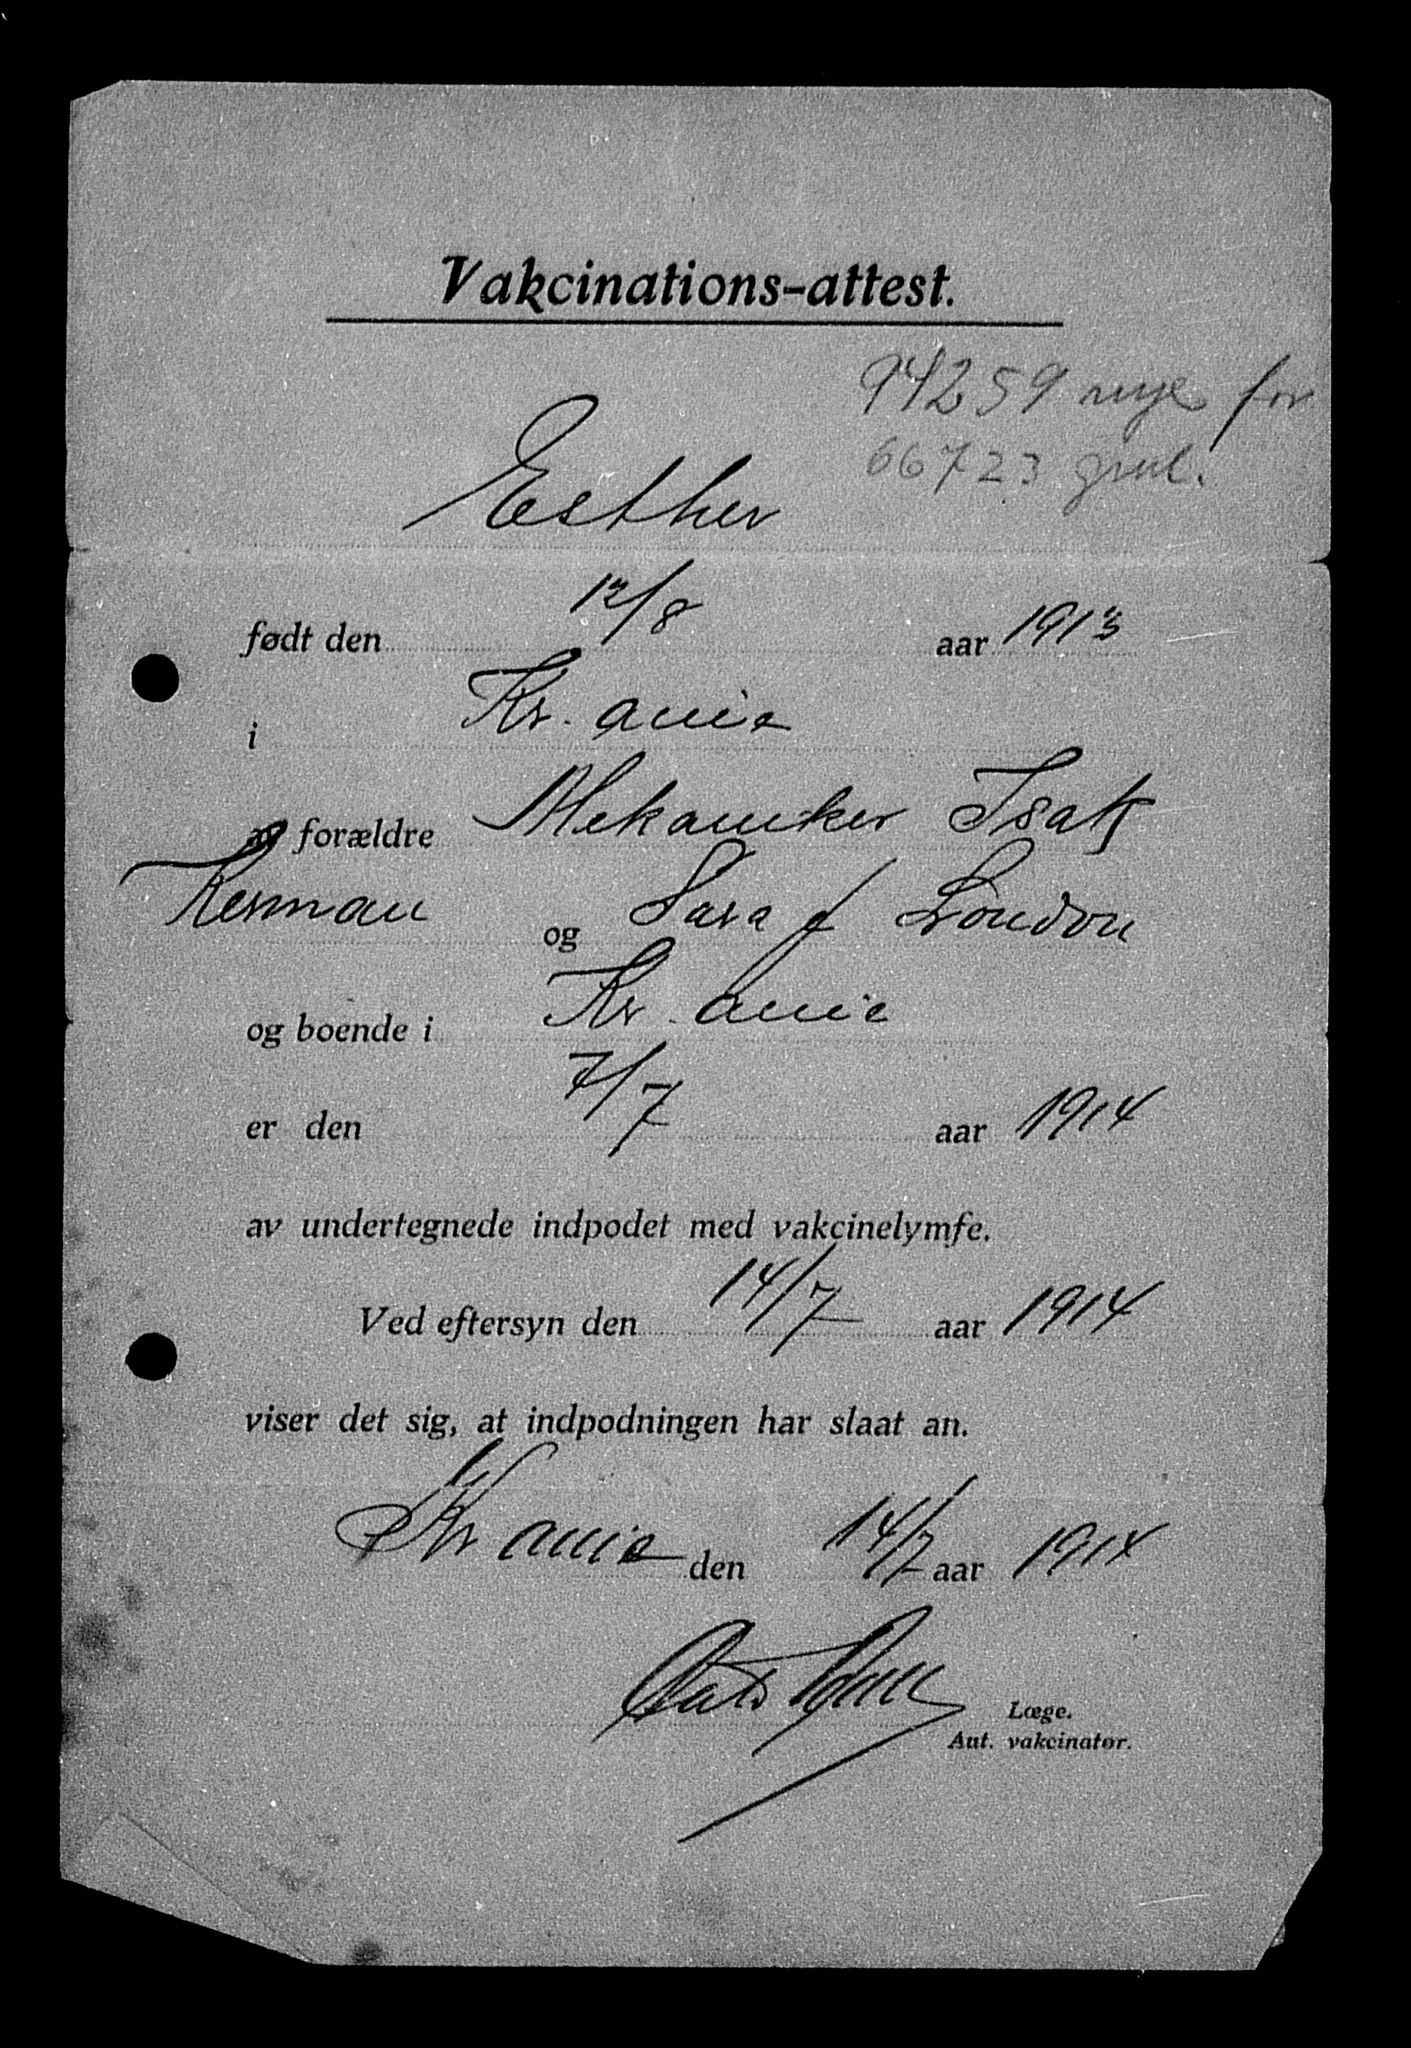 Vakcinations-attest.
94259 nye for
66723 grul.
Esther
født den 12/8 aar 1913
i Kr. ania
av forældre Mekaniker Isak
Kerman og Sara f London
og boende i Kr. ania
er den 7/7 aar 1914
av undertegnede indpodet med vakcinelymfe.
Ved eftersyn den 14/7 aar 1914
viser det sig, at indpodningen har slaat an.
Kr ania den 14/7 aar 1914
Læge.
Aut. vakcinatør.